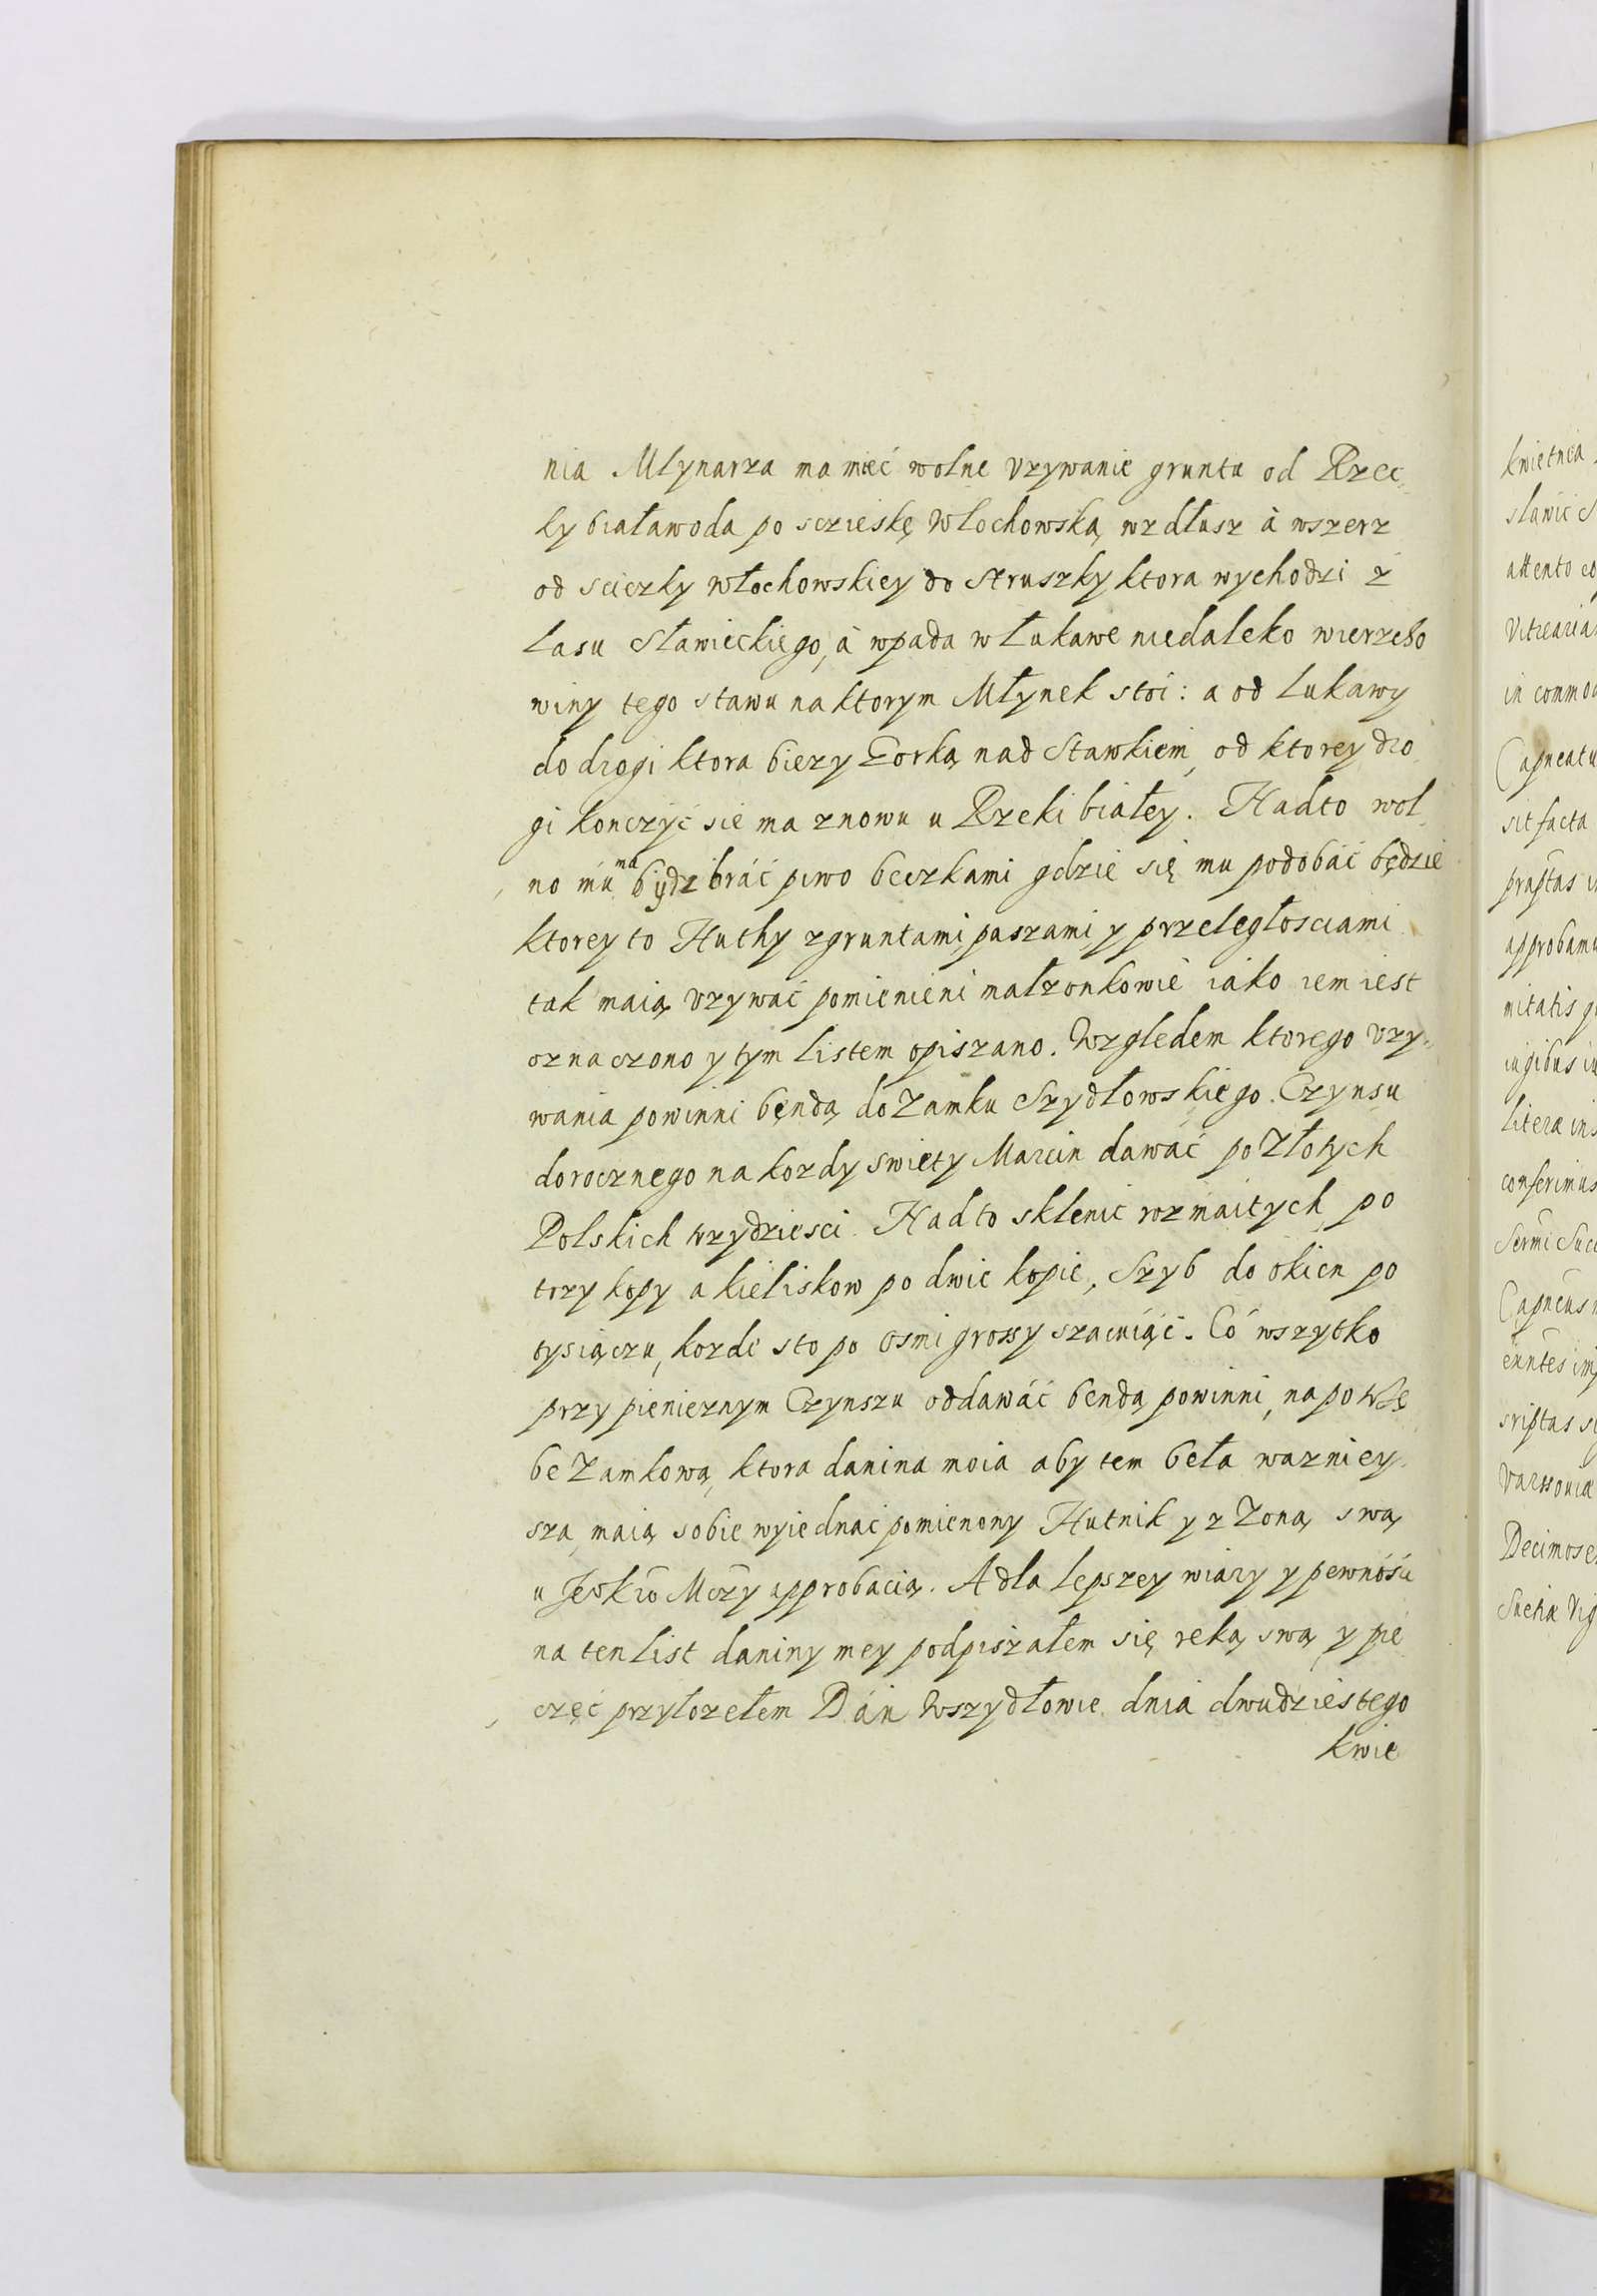 nia Młynarza ma mieć wolne vzywanie gruntu od Rzec
ky białawoda po sczieskę Włochowską wzdłusz à wszerz
od scieczky włochowskiey do Struszky ktora wychodzi z
Lasu Sławieckiego, à wpada w Łukawe niedaleko wierzcho
winy tego stawu na ktorym Młynek stoi: a od Lukawy
do drogi ktora biezy Gorką nad Stawkiem, od ktorey dro
gi konczyć sie ma znowu u Rzeki białey. Nadto wol
no mu ma bydz bráć piwo beczkami gdzie się mu podobáć będzie
ktorey to Huthy zgruntami paszami y przeległosciami
tak maią vzywać pomienieni małzonkowie iako iem iest
oznaczono y tym listem opiszano. Względem ktorego vzy
wania powinni bęndą do Zamku Szydłowskiego. Czynsu
dorocznego na kozdy swięty Marcin dawáć po Złotych
Polskich trzydziesci. Nadto sklenic rozmaitych po
trzy kopy a kieliskow po dwie kopie, Szyb do okien po
tysiączu, kozde sto po osmi grossy szacuiąć. Co wszytko
przy pienieznym Czynszu oddawáć bendą powinni, na potrze
be Zamkową, ktora danina moia aby tem beła wazniey
sza, maią sobie wyiednać pomienony Hutnik y z Zoną swą
u Je° K° Mczy approbacią. A dla lepszey wiary y pewnosci
na ten list daniny mey podpiszałem się ręką swą y pie
częć przylozełem Dán Wszydłowie dnia dwudziestego
kwie
kwietnia
sławie
attento
in commo
Capneatu
sit facta
approbamu
mitatis
conferimus
Decimose